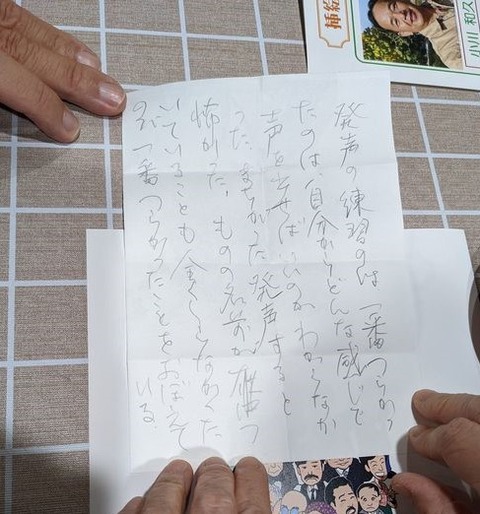 挿絵
小川 和久
発声の練習のは一番つらかっ
たのは、自分からどんな感じで
声を出せばいいのかわからなか
った。まちがった発声すると
怖かった。ものの名前が
いていることも全くしらなかった
のが一番つらかったことをおぼえて
いる。